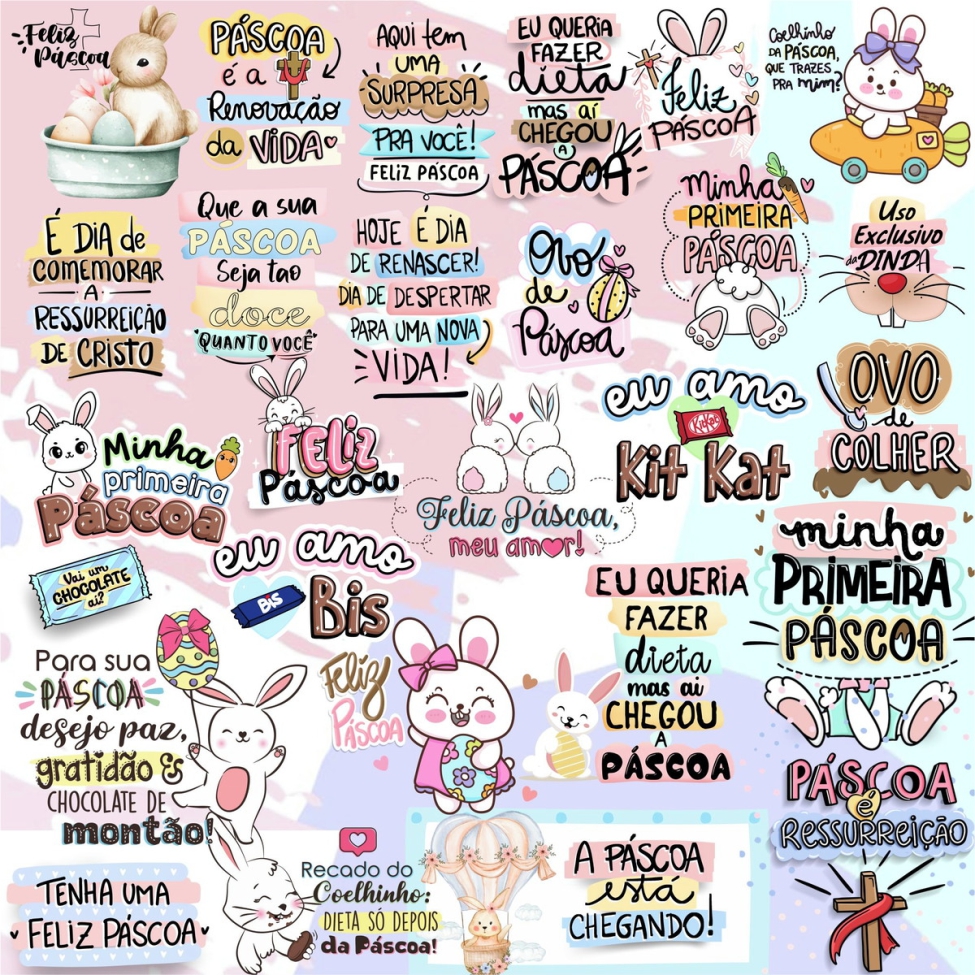 Feliz
Páscoa
PÁSCOA
é a
Renovação
da VIDA
AQUI tem
UMA
SURPRESA
PRA VOCÊ!
FELIZ PÁSCOA
EU QUERIA
FAZER
dieta
mas aí
CHEGOU
A
PÁSCOA
Feliz
PÁSCOA
Coelhinho
DA PÁSCOA,
QUE TRAZES
PRA MIM?
É DIA de
COMEMORAR
A
RESSURREIÇÃO
DE CRISTO
Que a sua
PÁSCOA
Seja tao
doce
QUANTO VOCÊ
HOJE É DIA
DE RENASCER!
DIA DE DESPERTAR
PARA UMA NOVA
VIDA!
Ovo
de
Páscoa
Minha
PRIMEIRA
PÁSCOA
Uso
Exclusivo
da DINDA
Minha
primeira
Páscoa
FELIZ
Páscoa
Feliz Páscoa,
meu amor!
eu amo
KitKat
Kit Kat
OVO
de
COLHER
Vai um
CHOCOLATE
aí?
eu amo
BIS
Bis
minha
PRIMEIRA
PÁSCOA
Para sua
PÁSCOA
desejo paz,
gratidão &
CHOCOLATE DE
montão!
Feliz
PÁSCOA
EU QUERIA
FAZER
dieta
mas ai
CHEGOU
A
PÁSCOA
PÁSCOA
é
RESSURREIÇÃO
TENHA UMA
FELIZ PÁSCOA
Recado do
Coelhinho:
DIETA SÓ DEPOIS
da Páscoa!
A PÁSCOA
está
CHEGANDO!